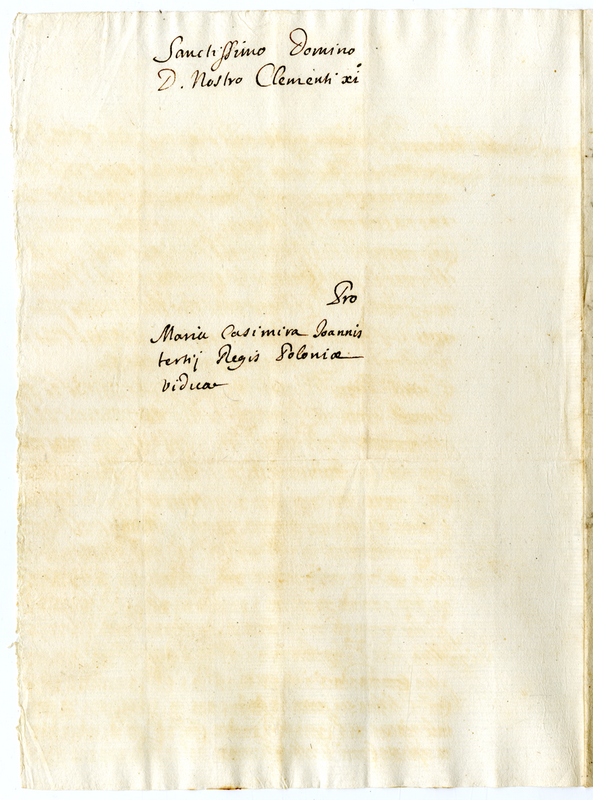 Sanctissimo Domino
D. Nostro Clementi xi°
Pro
Maria Casimira Ioannis
tertij Regis Poloniæ
viduae